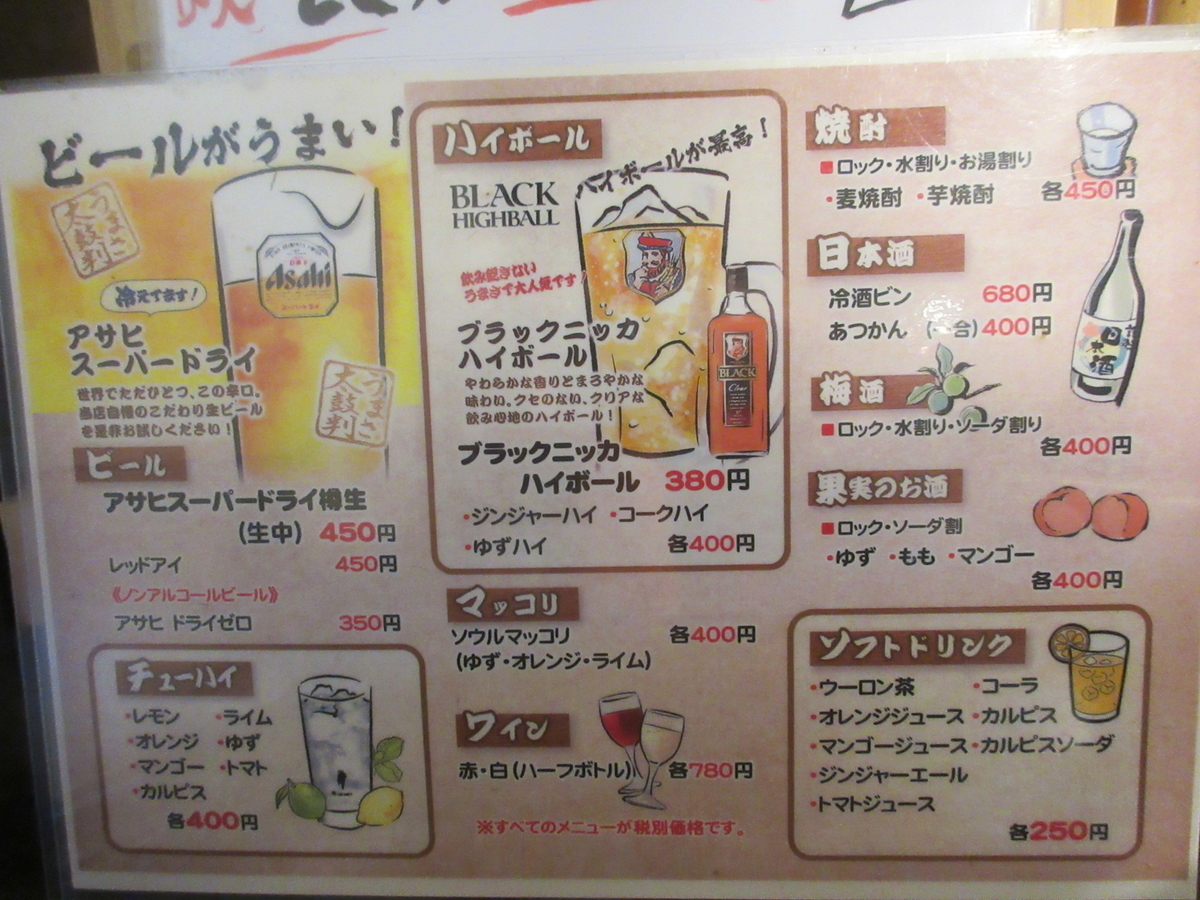 ビールがうまい!
うまさ
太鼓判
冷えてます!
Asahi
アサヒ
スーパードライ
世界でただひとつ、この辛口。
当店自慢のこだわり生ビール
を是非お試しください!
うまさ
太鼓判
ビール
アサヒスーパードライ樽生
(生中) 450円
レッドアイ 450円
《ノンアルコールビール》
アサヒ ドライゼロ 350円
チューハイ
・レモン ・ライム
・オレンジ ・ゆず
・マンゴー ・トマト
・カルピス
各400円
ハイボール
ハイボールが最高!
BLACK
HIGHBALL
飲み飽きない
うまさで大人気です!
ブラックニッカ
ハイボール
やわらかな香りとまろやかな
味わい。クセのない、クリアな
飲み心地のハイボール!
BLACK
Clear
ブラックニッカ
ハイボール 380円
・ジンジャーハイ ・コークハイ
・ゆずハイ 各400円
マッコリ
ソウルマッコリ 各400円
(ゆず・オレンジ・ライム)
ワイン
赤・白(ハーフボトル) 各780円
※すべてのメニューが税別価格です。
焼酎
■ロック・水割り・お湯割り
・麦焼酎 ・芋焼酎 各450円
日本酒
冷酒ビン 680円
あつかん (一合) 400円
日本酒
梅酒
■ロック・水割り・ソーダ割り
各400円
果実のお酒
■ロック・ソーダ割
・ゆず ・もも ・マンゴー
各400円
ソフトドリンク
・ウーロン茶 ・コーラ
・オレンジジュース ・カルピス
・マンゴージュース ・カルピスソーダ
・ジンジャーエール
・トマトジュース
各250円